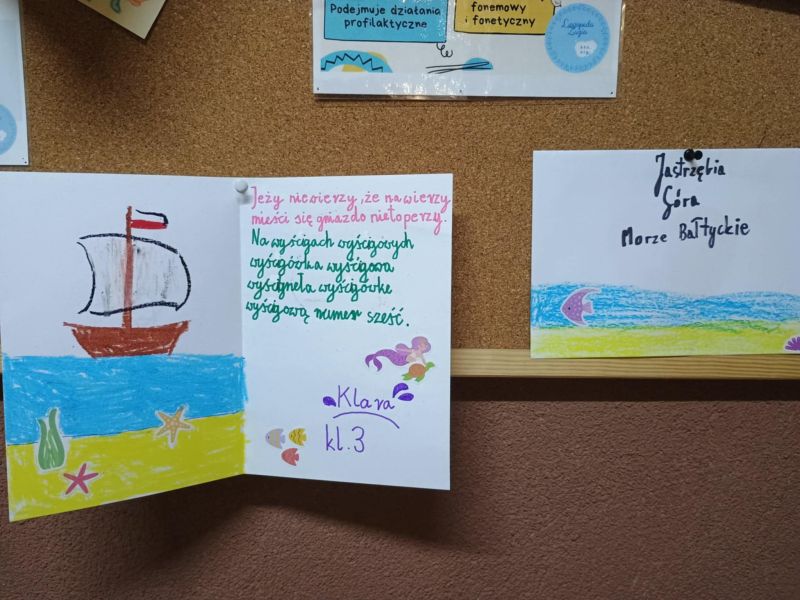 Podejmuje działania
profilaktyczne
fonemowy
i fonetyczny
Logopeda
Jeży nie wierzy, że na wierzy
mieści się gniazdo nietoperzy.
Na wyścigach wyścigowych
wyścigówka wyścigowa
wyścignęła wyścigówkę
wyścigową numer sześć.
Klara
kl.3
Jastrzębia
Góra
Morze Bałtyckie